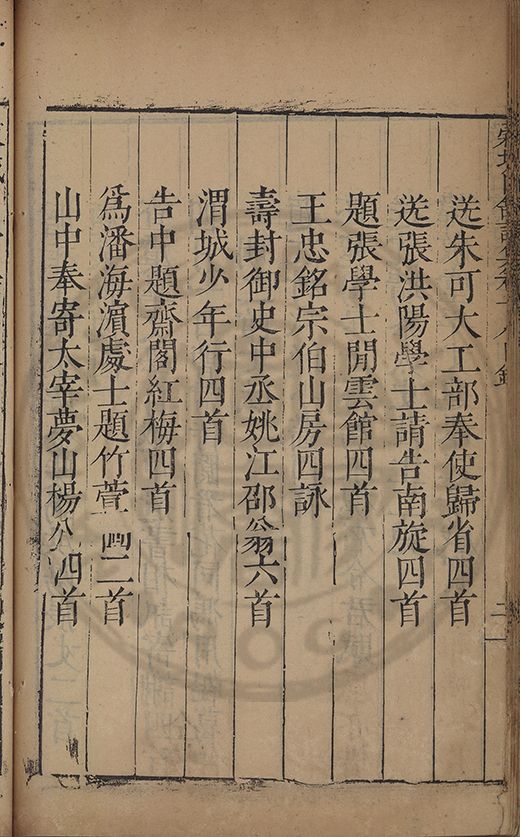 送朱可大工部奉使歸省四首
送張洪陽學士請告南旋四首
題張學士閒雲館四首
王忠銘宗伯山房四詠
壽封御史中丞姚江邵翁六首
渭城少年行四首
告中題齋閣紅梅四首
為潘海濵處士題竹萱圖二首
山中奉寄太宰夢山楊公四首